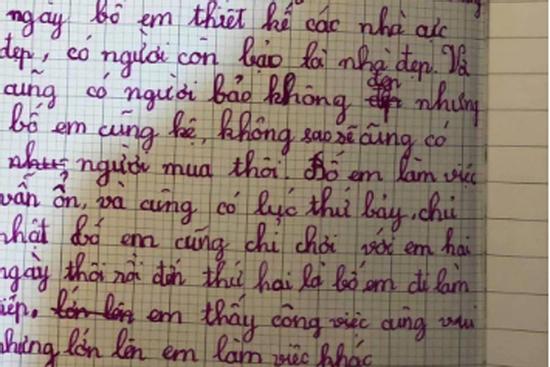 ngày bố em thiết kế các nhà cực
đẹp, có người còn bảo là nhà đẹp. Và
cũng có người bảo không đẹp nhưng
bố em cũng kệ, không sao sẽ cũng có
người mua thôi. Bố em làm việc
vẫn ổn, và cũng có lục thứ bảy, chủ
nhật bố em cũng chỉ chơi với em hai
ngày thôi rồi đến thứ hai là bố em đi làm
tiếp. lớn lên em thấy công việc cũng vui
nhưng lớn lên em làm việc khác